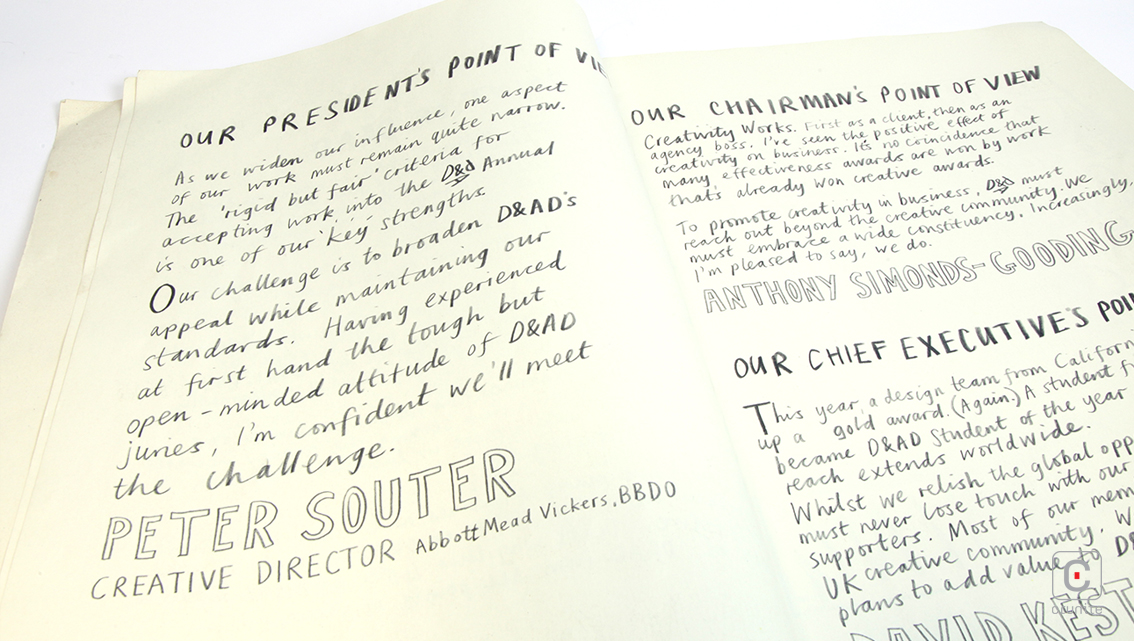 OUR PRESIDENT'S POINT OF
As we widen our influence, one aspect
of our work must remain quite narrow.
The 'rigid but fair' criteria for
accepting work into the D&AD Annual
is one of our key strengths.
Our challenge is to broaden D&AD's
appeal while maintaining our
standards. Having experienced
at first hand the tough but
open-minded attitude of D&AD
juries, I'm confident we'll meet
the challenge.
PETER SOUTER
CREATIVE DIRECTOR Abbott Mead Vickers, BBDO
OUR CHAIRMAN'S POINT OF VIEW
Creativity Works. First as a client, then as an
agency boss. I've seen the positive effect of
creativity on business. It's no coincidence that
many effectiveness awards are won by work
that's already won creative awards.
To promote creativity in business, D&AD must
reach out beyond the creative community. We
must embrace a wide constituency. Increasingly,
I'm pleased to say, we do.
ANTHONY SIMONDS-GOODING
OUR CHIEF EXECUTIVE'S
This year, a design team from
up a gold award. (Again.) A student
became D&AD Student of the year
reach extends worldwide.
Whilst we relish the global
must never lose touch with our
supporters. Most of our
UK creative community.
plans to add value to
DAVID